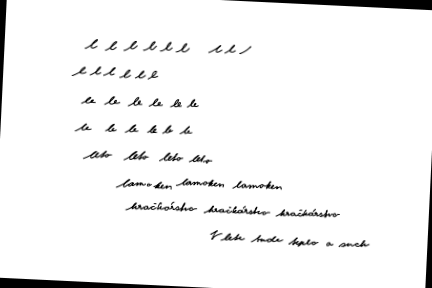 l l l l l l l l
l l l l l l
le le le le le le
le le le le le le
leto leto leto leto
lamoken lamoken lamoken
hračkárstvo hračkárstvo hračkárstvo
V lete bude teplo a such